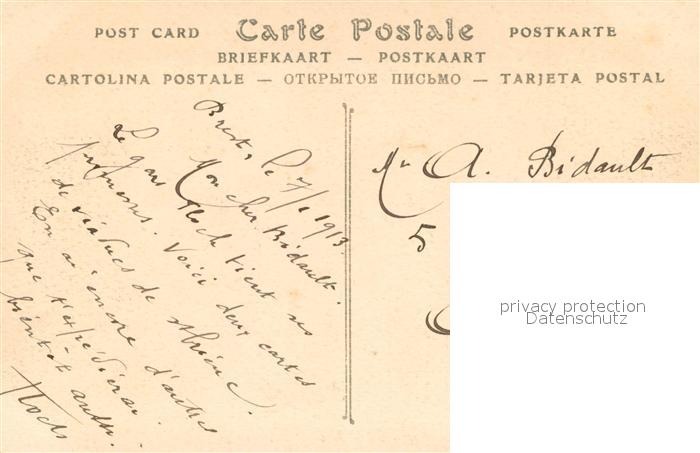 POST CARD Carte Postale POSTKARTE
BRIEFKAART — POSTKAART
CARTOLINA POSTALE — ОТКРЫТОЕ ПИСЬМО — TARJETA POSTAL
Brest, le 7/1 1913.
Mon cher Bidault.
Le gars Floch vient
Voici deux cartes
de viaducs de
En ai encore d'autres
que t'expédierai
bientôt
Floch
Mr A. Bidault
5
privacy protection
Datenschutz